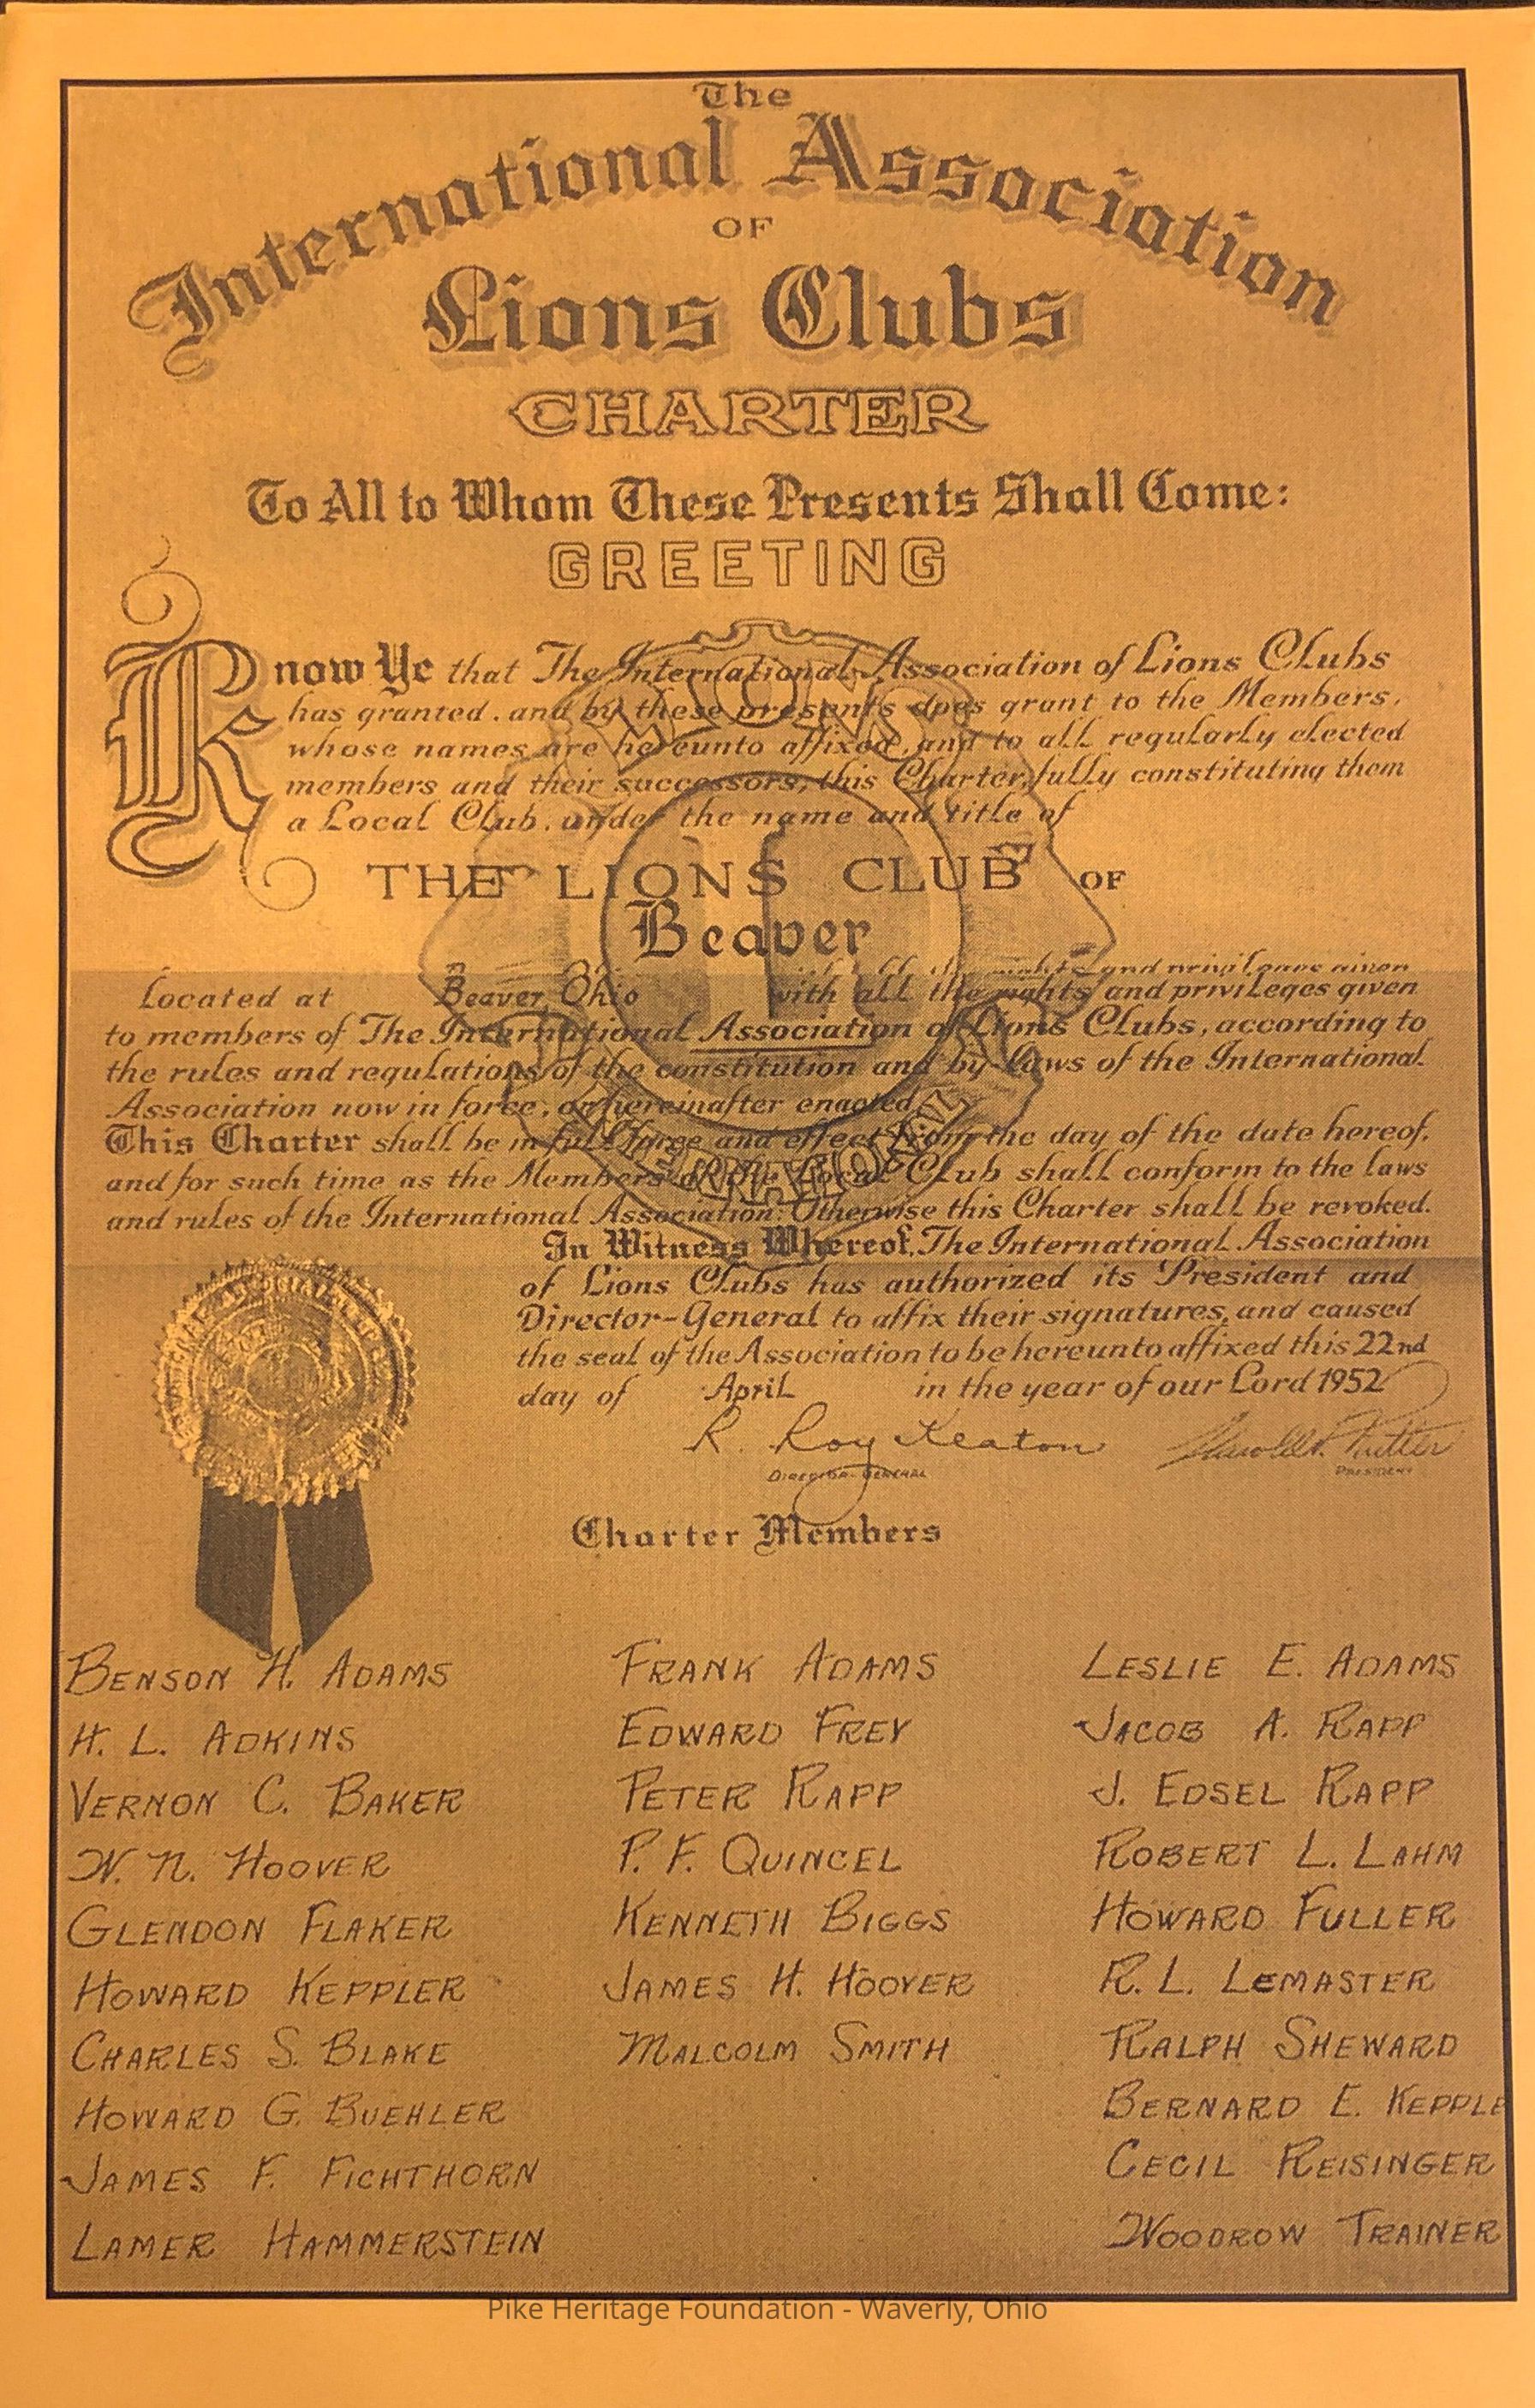 The
International Association
OF
Lions Clubs
CHARTER
To All to Whom These Presents Shall Come:
GREETING
Know Ye that The International Association of Lions Clubs
has granted, and by these presents does grant to the Members,
whose names are hereunto affixed, and to all regularly elected
members and their successors, this Charter, fully constituting them
a Local Club, under the name and title of
THE LIONS CLUB OF
Beaver
with all the rights and privileges given
Located at Beaver, Ohio with all the rights and privileges given
to members of The International Association of Lions Clubs, according to
the rules and regulations of the constitution and by-laws of the International
Association now in force, or hereinafter enacted.
This Charter shall be in full force and effect from the day of the date hereof,
and for such time as the Members of the Local Club shall conform to the laws
and rules of the International Association: Otherwise this Charter shall be revoked.
In Witness Whereof, The International Association
of Lions Clubs has authorized its President and
Director-General to affix their signatures, and caused
the seal of the Association to be hereunto affixed this 22nd
day of April in the year of our Lord 1952
R. Roy Keaton Harold P. Nutter
DIRECTOR-GENERAL PRESIDENT
LIONS
INTERNATIONAL
Charter Members
BENSON H. ADAMS FRANK ADAMS LESLIE E. ADAMS
H. L. ADKINS EDWARD FREY JACOB A. RAPP
VERNON C. BAKER PETER RAPP J. EDSEL RAPP
W. N. HOOVER P. F. QUINCEL ROBERT L. LAHM
GLENDON FLAKER KENNETH BIGGS HOWARD FULLER
HOWARD KEPPLER JAMES H. HOOVER R. L. LEMASTER
CHARLES S. BLAKE MALCOLM SMITH RALPH SHEWARD
HOWARD G. BUEHLER BERNARD E. KEPPLE
JAMES F. FICHTHORN CECIL REISINGER
LAMER HAMMERSTEIN WOODROW TRAINER
Pike Heritage Foundation - Waverly, Ohio